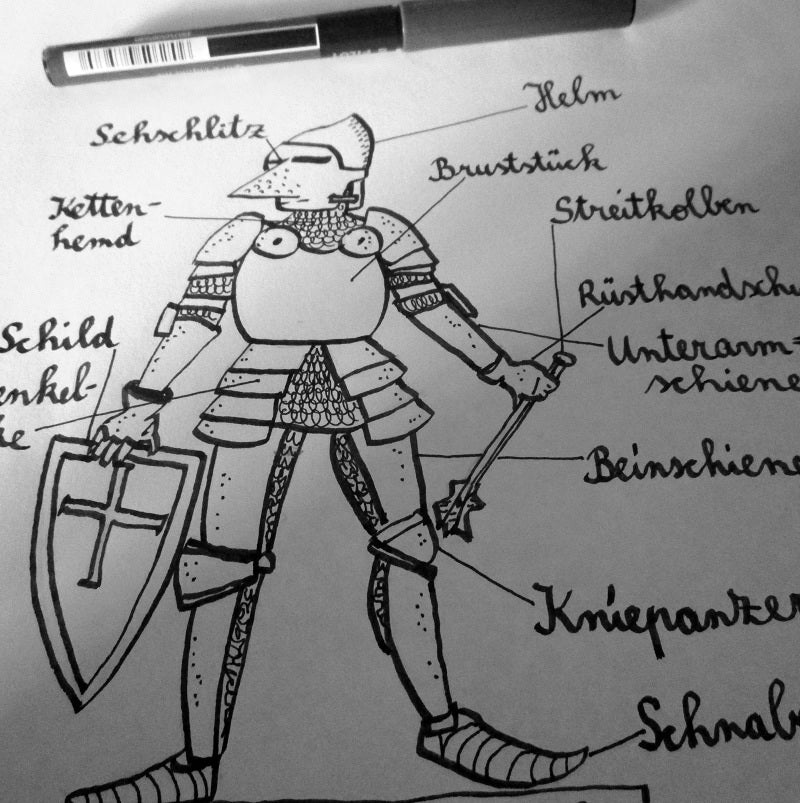 Helm
Sehschlitz
Bruststück
Ketten-
hemd
Streitkolben
Rüsthandschu
Schild
Unterarm-
schiene
enkel-
ke
Beinschiene
Kniepanzer
Schnab